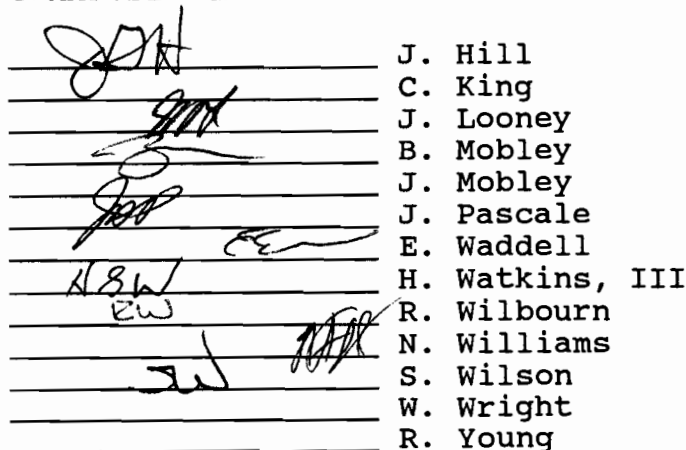 J. Hill
C. King
J. Looney
B. Mobley
J. Mobley
J. Pascale
E. Waddell
HSW H. Watkins, III
EW R. Wilbourn
N. Williams
SW S. Wilson
W. Wright
R. Young